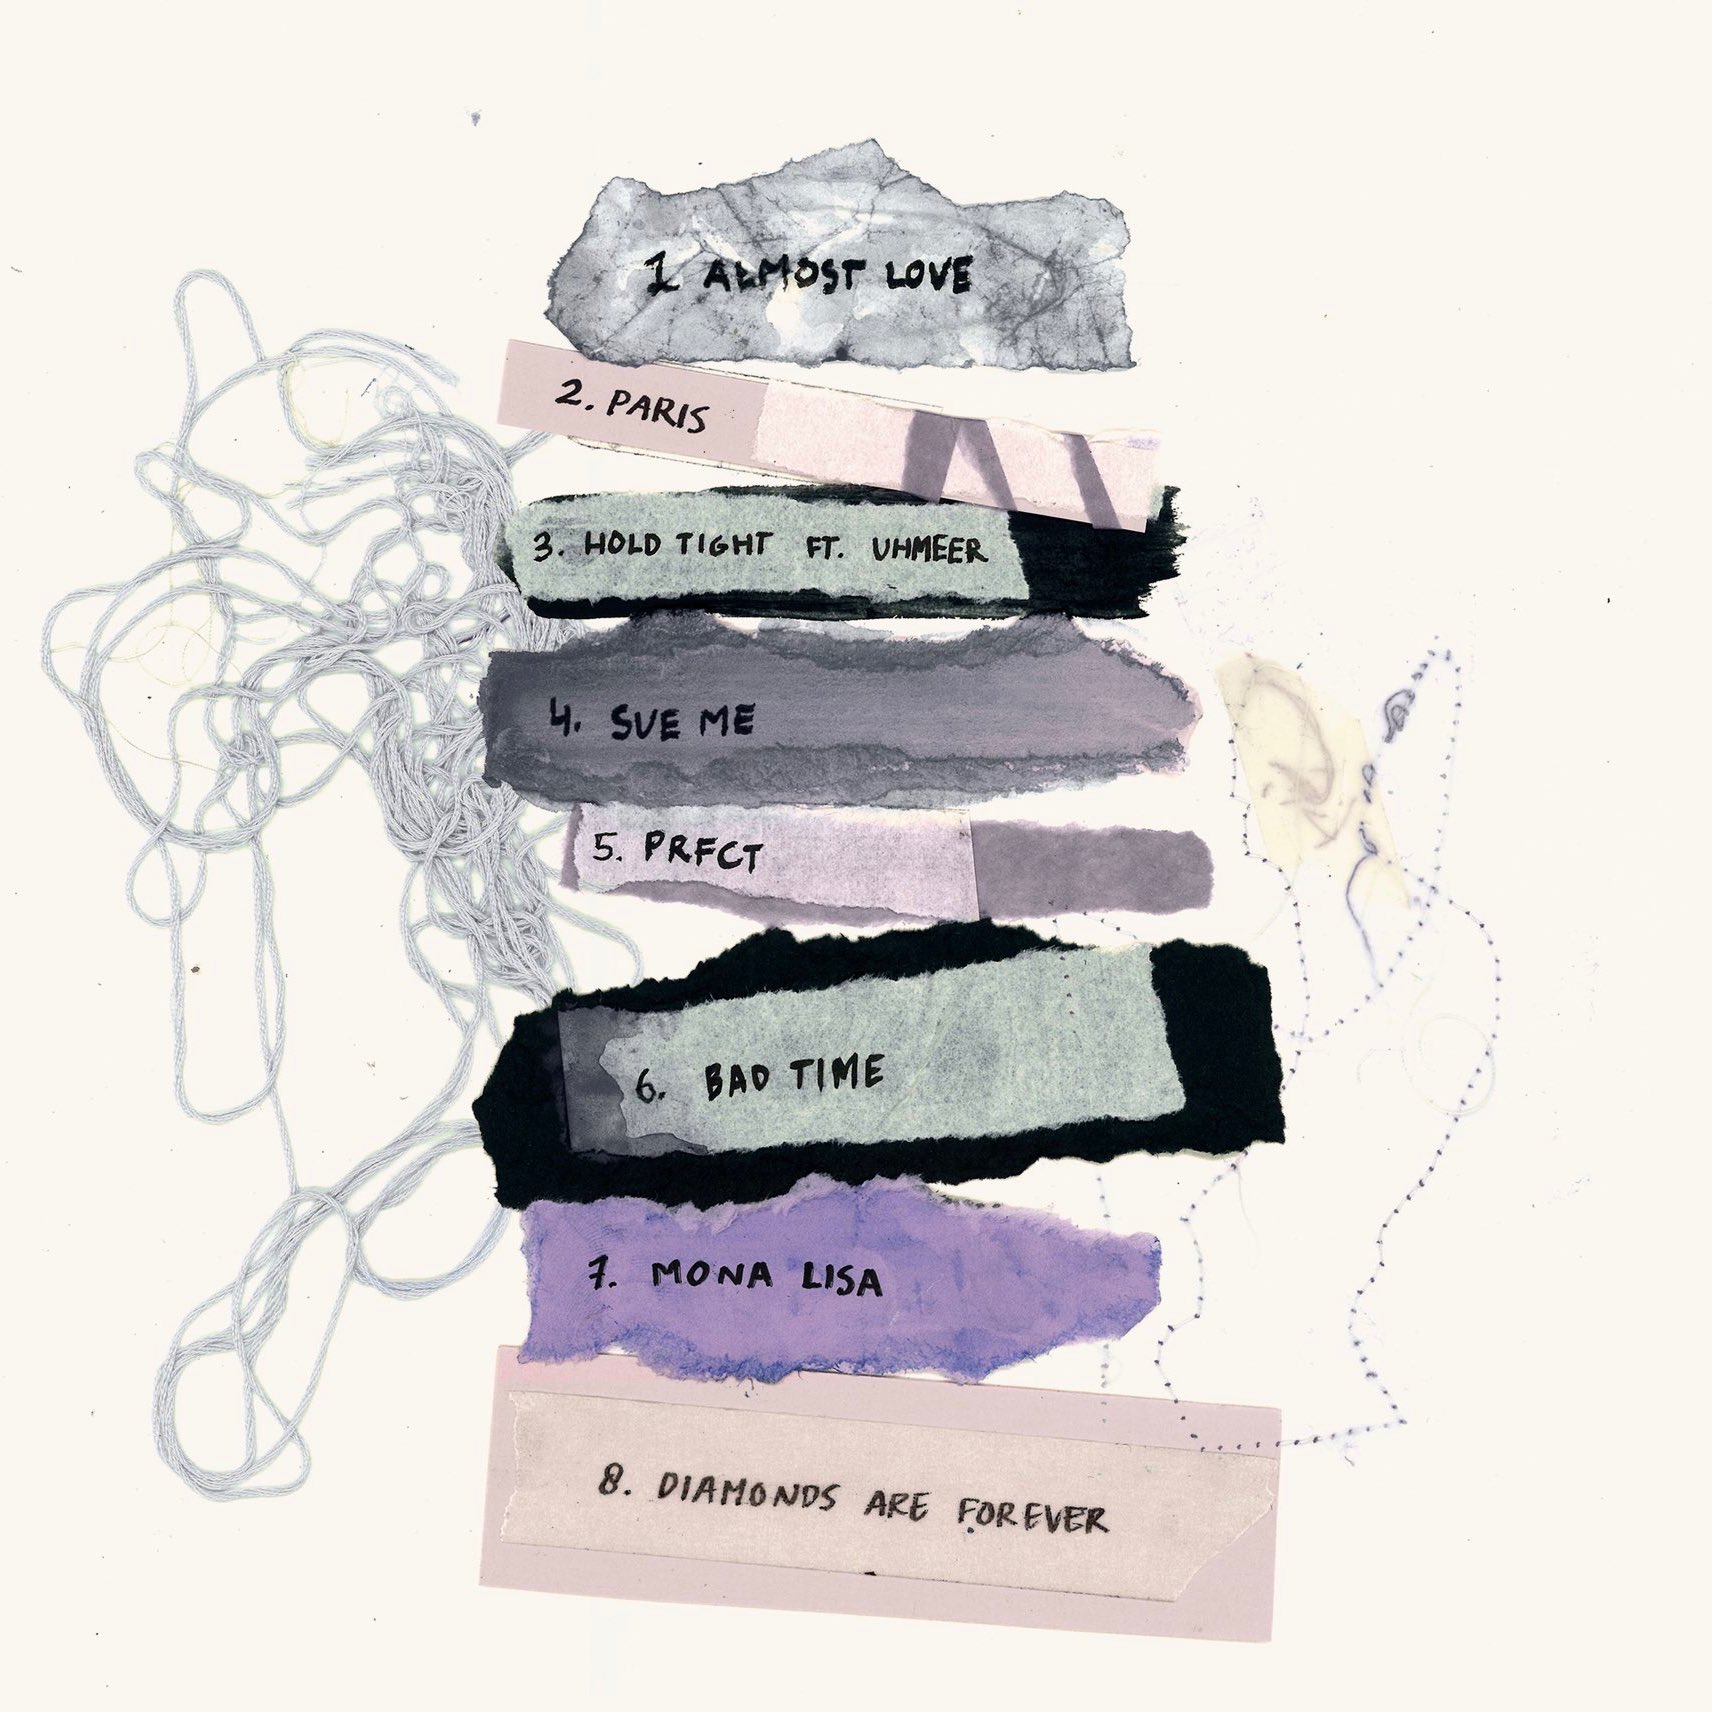 1 ALMOST LOVE
2. PARIS
3. HOLD TIGHT FT. UHMEER
4. SUE ME
5. PRFCT
6. BAD TIME
7. MONA LISA
8. DIAMONDS ARE FOREVER